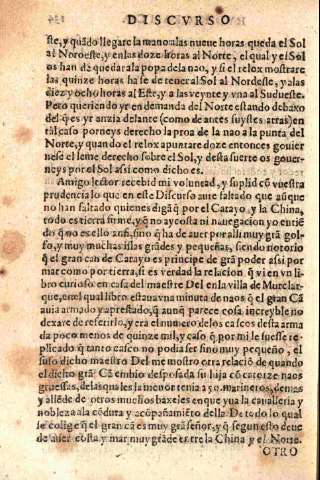 DISCVRSO
ste, y quãdo llegare la mano a las nueue horas queda el Sol
al Noroeste, y en las doze horas al Norte, el qual y el Sol
os han dẽ quedar a la popa de la nao, y si el relox mostrare
las quinze horas ha se de tener al Sol al Nordeste, y a las
diez y ocho horas al Este, y a las veynte y vna al Sudueste.
Pero queriendo yr en demanda del Norte estando debaxo
del q̃ es yr anzia delante (como de antes fuystes atras) en
tal caso porneys derecho la proa de la nao a la punta del
Norte, y quando el relox apuntare doze entonces gouier
nese el leme derecho sobre el Sol, y desta suerte os gouer-
neys por el Sol assi como dicho es.
Amigo lector recebid mi voluntad, y suplid cõ vuestra
prudencia lo que en este Discurso aure faltado que aũque
no han faltado quienes digã q̃ por el Catayo y la China,
todo es tierra firme, y q̃ no ay costa ni nauegacion yo entiẽ
do q̃ no es ello ansi, sino q̃ ha de auer por alli muy grã gol-
fo, y muy muchas islas grãdes y pequeñas, siendo notorio
q̃ el gran can de Catayo es principe de grã poder assi por
mar como por tierra, si es verdad la relacion q̃ vi en vn li
bro curioso en casa del maestre Del en la villa de Murclar-
que, en el qual libro estaua vna minuta de naos q̃ el gran Cã
auia armado y aprestado, q̃ aunq̃ parece cosa increyble no
dexare de referirlo, y era el numero de los cascos desta arma
da poco menos de quinze mil, y caso q̃ por mi le fuesse re-
plicado q̃ tanto casco no podia ser sino muy pequeño, el
suso dicho maestro Del me mostro otra relaciõ de quando
el dicho grã Cã embio desposada su hija cõ catorze naos
gruessas, de las quales la menor tenia a 90. marineros, demas
y allẽde de otros muchos baxeles en que yua la caualleria y
nobleza a la cõduta y acõpañamiẽto della. De todo lo qual
se colige q̃ el gran cã es muy grã señor, y q̃ segun esto deue
de auer costa y mar muy grãde entre la China y el Norte.
OTRO